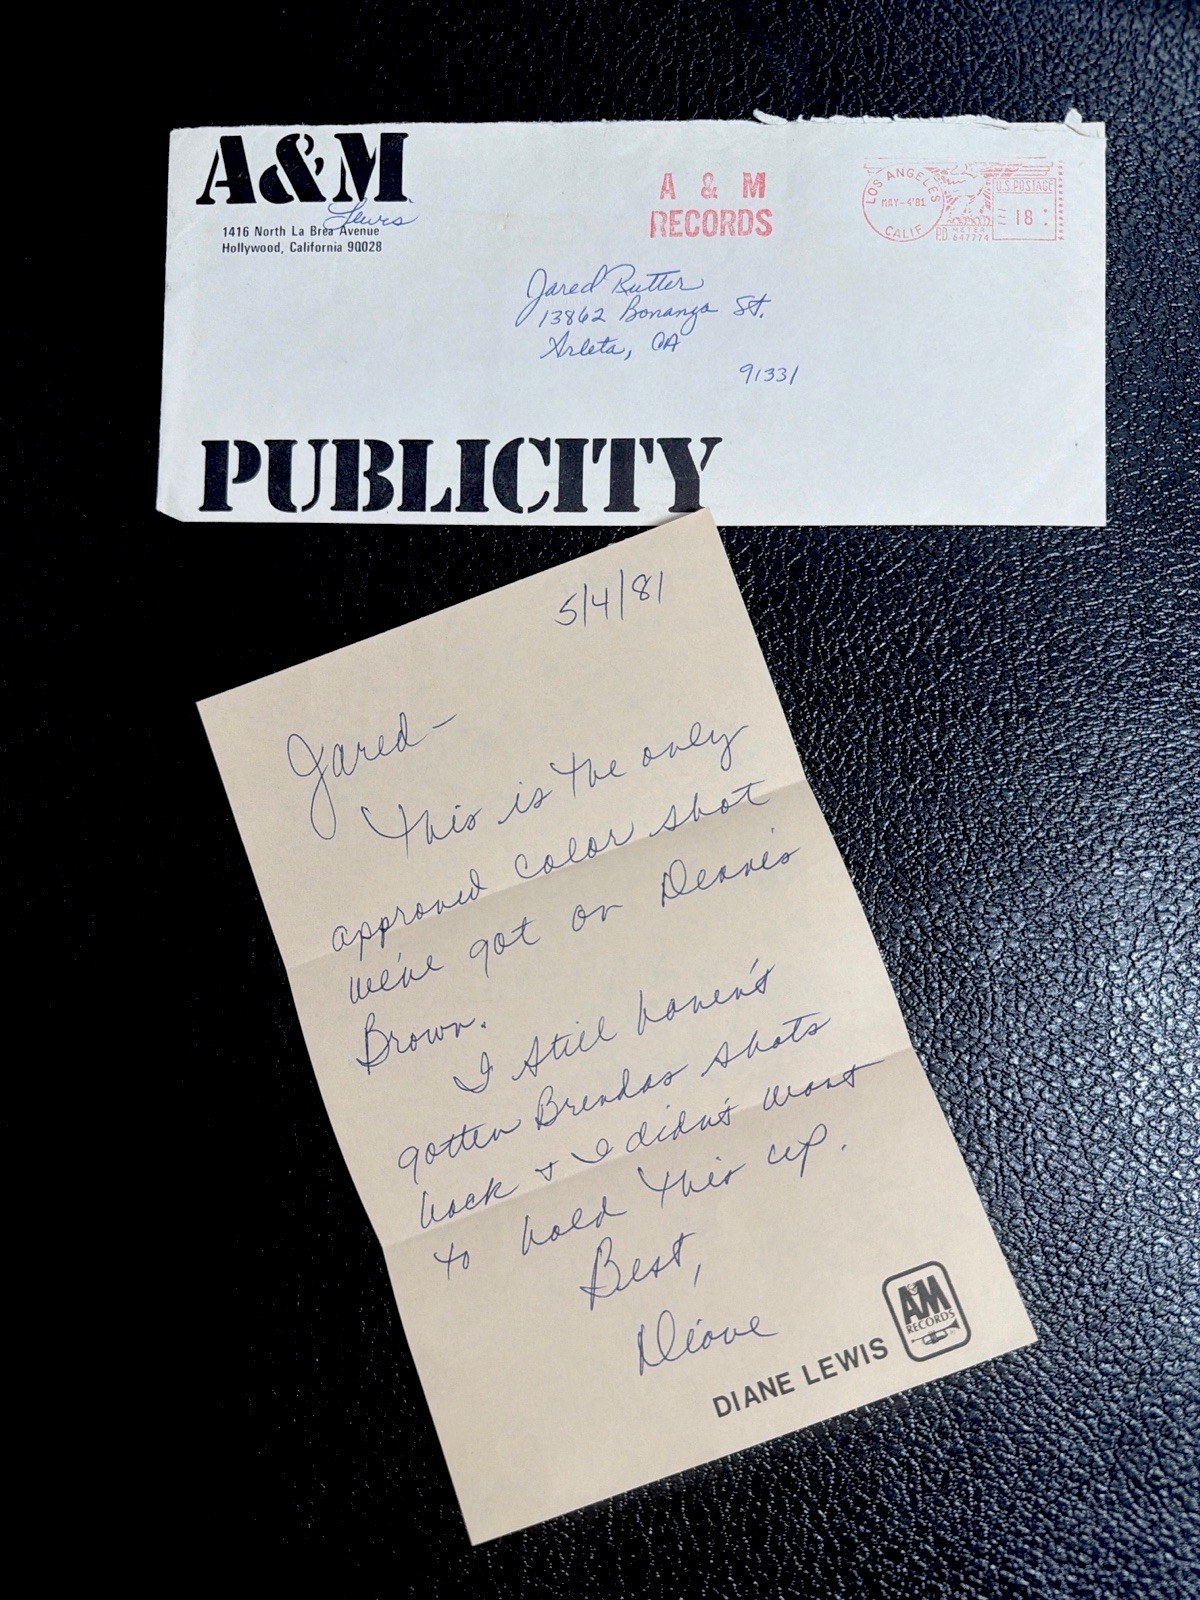 A&M
Lewis
1416 North La Brea Avenue
Hollywood, California 90028
A & M
RECORDS
LOS ANGELES
MAY-4'81
CALIF
U.S. POSTAGE
18
PB METER
P.B. 647774
Jared Rutter
13862 Bonanza St.
Arleta, CA
91331
PUBLICITY
5/4/81
Jared-
This is the only
approved color shot
we've got on Dennis
Brown.
I still haven't
gotten Brendas shots
back & I didn't want
to hold this up.
Best,
Diane
DIANE LEWIS
A&M
RECORDS